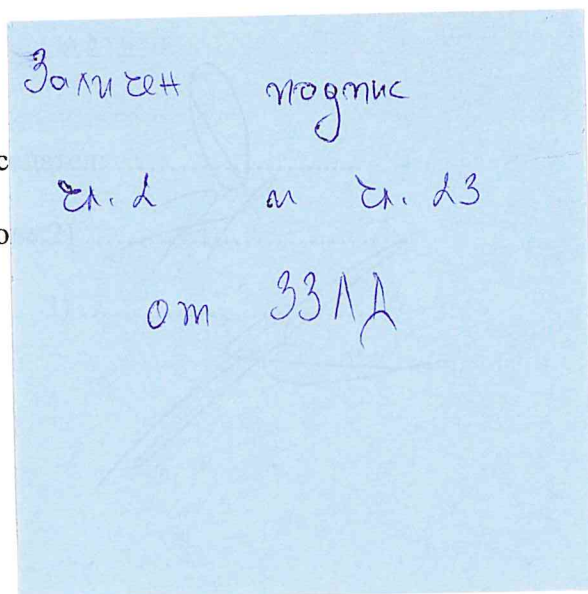 Заличен подпис
с
чл. 2 и чл. 23
о
от ЗЗЛД